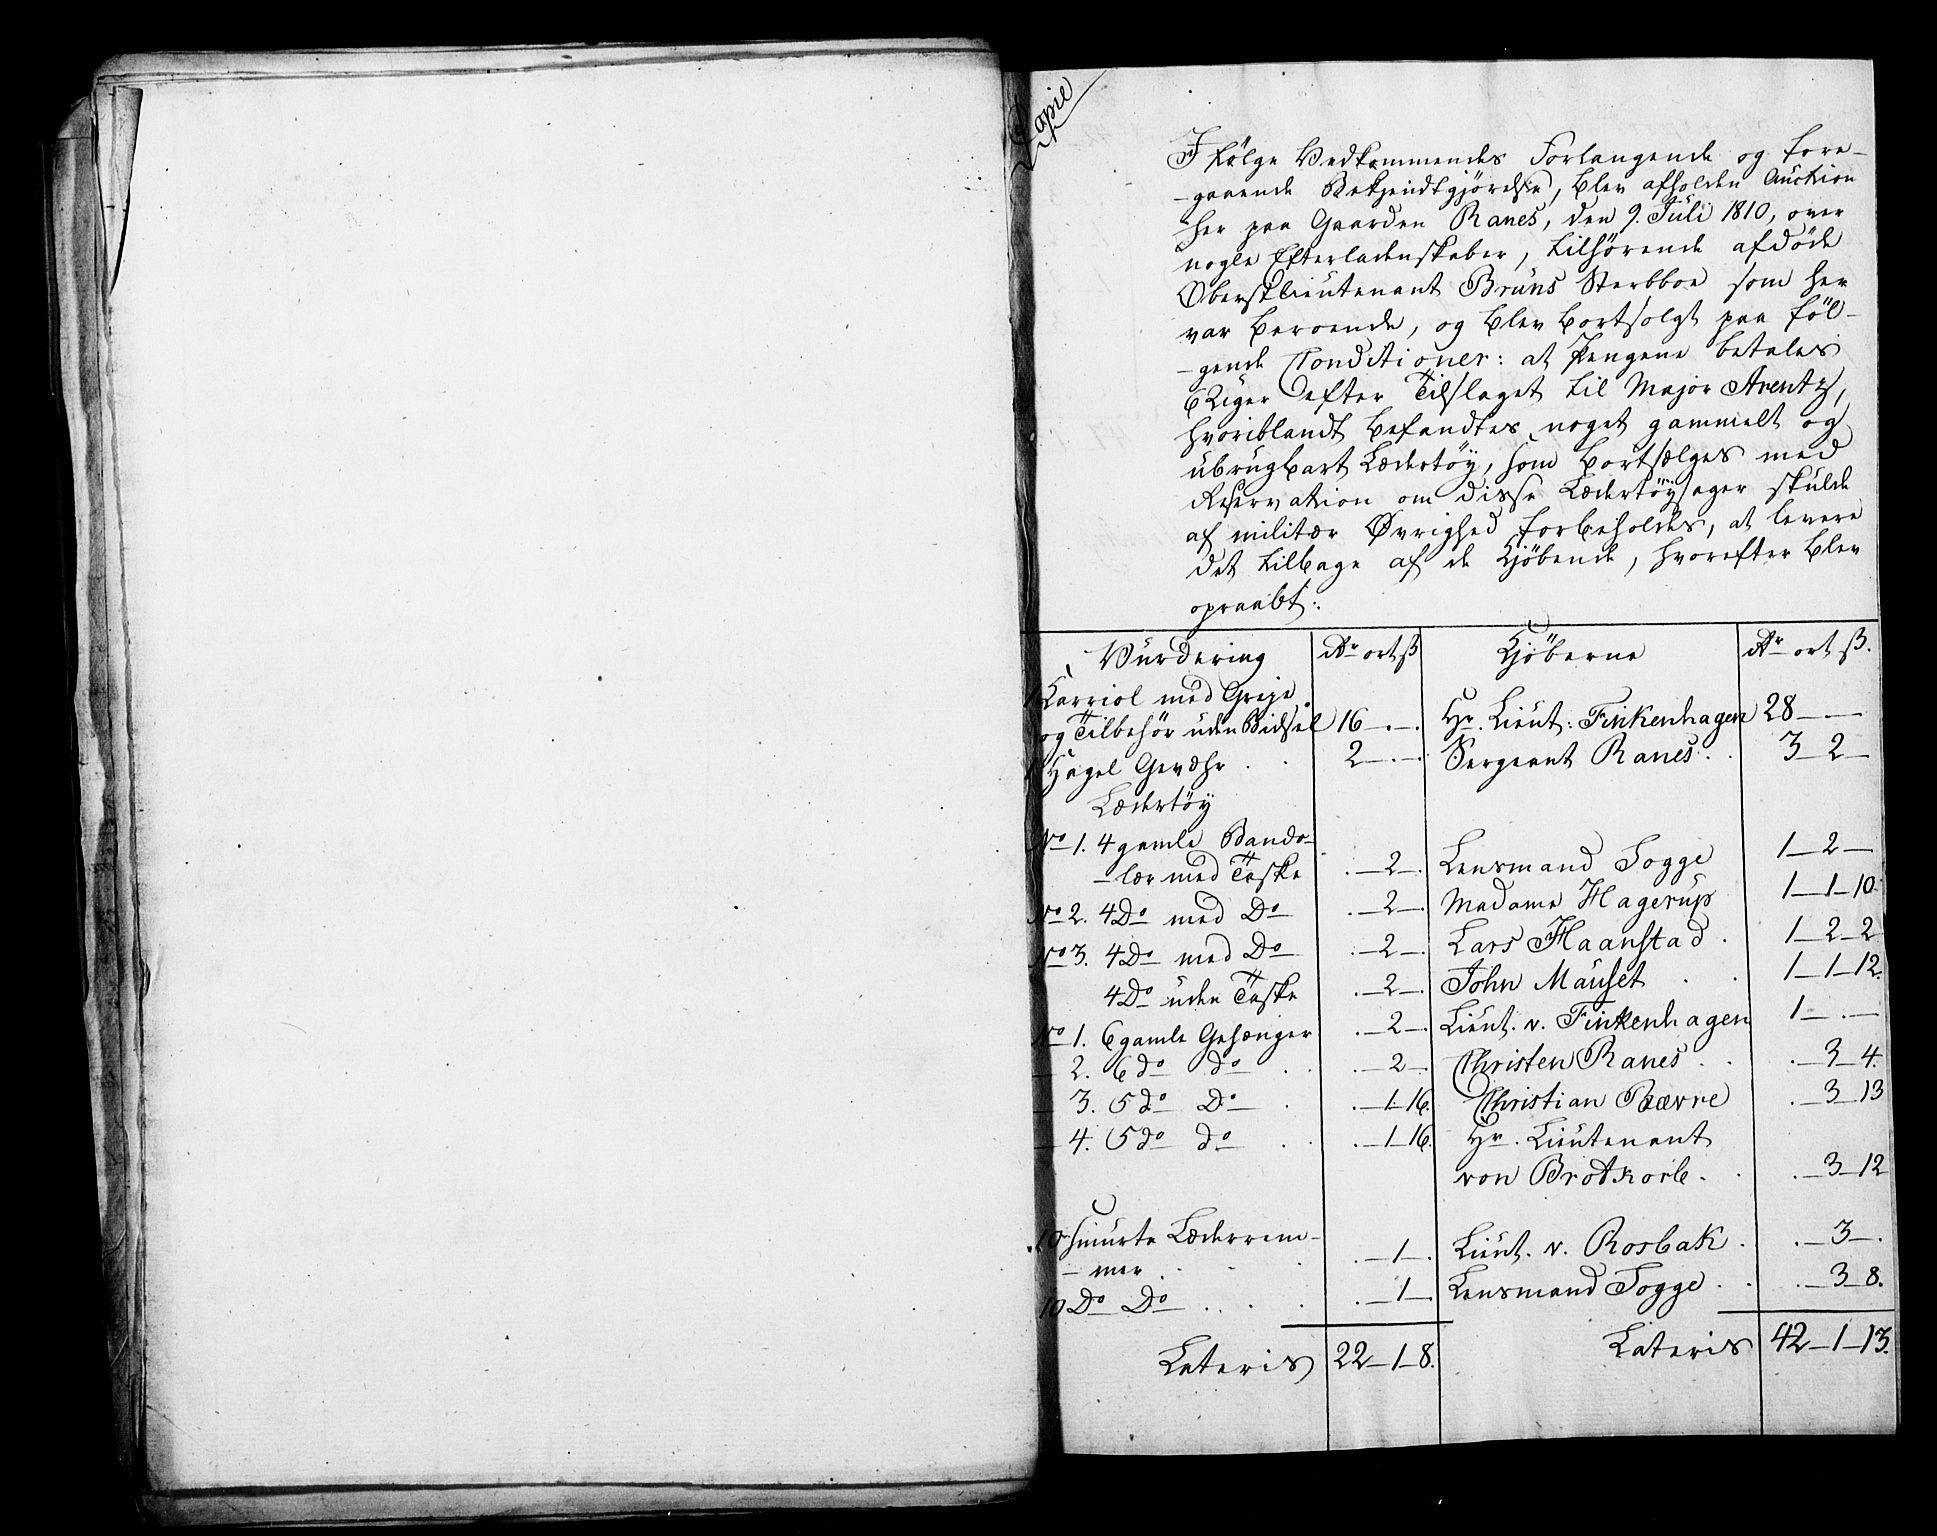 Copie
I følge Vedkommendes Forlangende og fore-
-gaaende Bekjendtgjørelse, blev afholden Auction
her paa Gaarden Ranes, den 9. Juli 1810, over
nogle Efterladenskaber, tilhørende afdøde
Oberstlieutenant Bruns Sterbboe som her
var beroende, og blev bortsolgt paa føl-
-gende Conditioner: at Pengene betales
6 Uger efter Tilslaget til Major Arentz,
hvoriblandt befandtes noget gammelt og
ubrugbart Lædertøy, som bortsælges med
Reservation om disse Lædertøysager skulde
af militær Øvrighed forbeholdes, at levere
det tilbage af de Kjøbende, hvorefter blev
opraabt:
Vurdering | dr ort ß | Kjøberne | dr ort ß.
1 Karriol med Greje
og Tilbehør uden Bidsel | 16 - . - . | Hr. Lieut: Finkenhagen | 28 - -
1 Hagel Gevæhr . . | 2 - . - . | Sergeant Ranes . . | 3 - 2 -
Lædertøy
No 1. 4 gamle Bando-
-lær med Taske | . - 2 - . | Lensmand Togge | 1 - 2 -
No 2. 4 Do med Do | . - 2 - . | Madame Hagerup | 1 - 1 - 10.
No 3. 4 Do med Do | . - 2 - . | Lars Haanstad . | 1 - 2 - 2
4 Do uden Taske | . - 2 - . | John Mauset . . | 1 - 1 - 12.
No 1. 6 gamle Gehænger | . - 2 - . | Lieut. v. Finkenhagen | 1 - . -
2. 6 do do . . | . - 2 - . | Christen Ranes . . | . - 3 - 4.
3. 5 do Do . | . - 1 - 16. | Christian Bævre | . - 3 - 13
4. 5 do do . . | . - 1 - 16. | Hr. Lieutenant
von Brotkorb . . | . - 3 - 12
10 smurte Læderrem-
-mer . . . | . - 1 - . | Lieut. v. Rosbak . | . - 3 - .
10 Do Do . . . . | . - 1 - . | Lensmand Togge . . | . - 3 - 8.
Lateris | 22 - 1 - 8. | Lateris | 42 - 1 - 13.